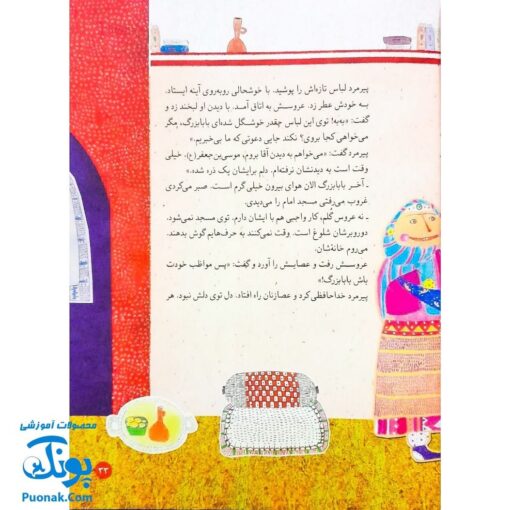 پیرمرد لباس تازه‌اش را پوشید. با خوشحالی روبه‌روی آینه ایستاد.
به خودش عطر زد. عروسش به اتاق آمد. با دیدن او لبخند زد و
گفت: «به‌به! توی این لباس چقدر خوشگل شده‌ای بابابزرگ، مگر
می‌خواهی کجا بروی؟ نکند جایی دعوتی که ما بی‌خبریم.»
پیرمرد گفت: «می‌خواهم به دیدن آقا بروم، موسی‌بن‌جعفر(ع). خیلی
وقت است به دیدنشان نرفته‌ام. دلم برایشان یک ذره شده.»
ـ آخـر بابابزرگ الان هوای بیرون خیلی گرم است. صبر می‌کردی
غروب می‌رفتی مسجد امام را می‌دیدی.
ـ نه عروس گلم، کار واجبی هم با ایشان دارم. توی مسجد نمی‌شود،
دوروبرشان شلوغ است. وقت نمی‌کنند به حرف‌هایم گوش بدهند.
می‌روم خانه‌شان.
عروسش رفت و عصایش را آورد و گفت: «پس مواظب خودت
باش بابابزرگ!»
پیرمرد خداحافظی کرد و عصازنان راه افتاد. دل توی دلش نبود. هر
۳۳
محصولات آموزشی
پونک
Puonak.Com